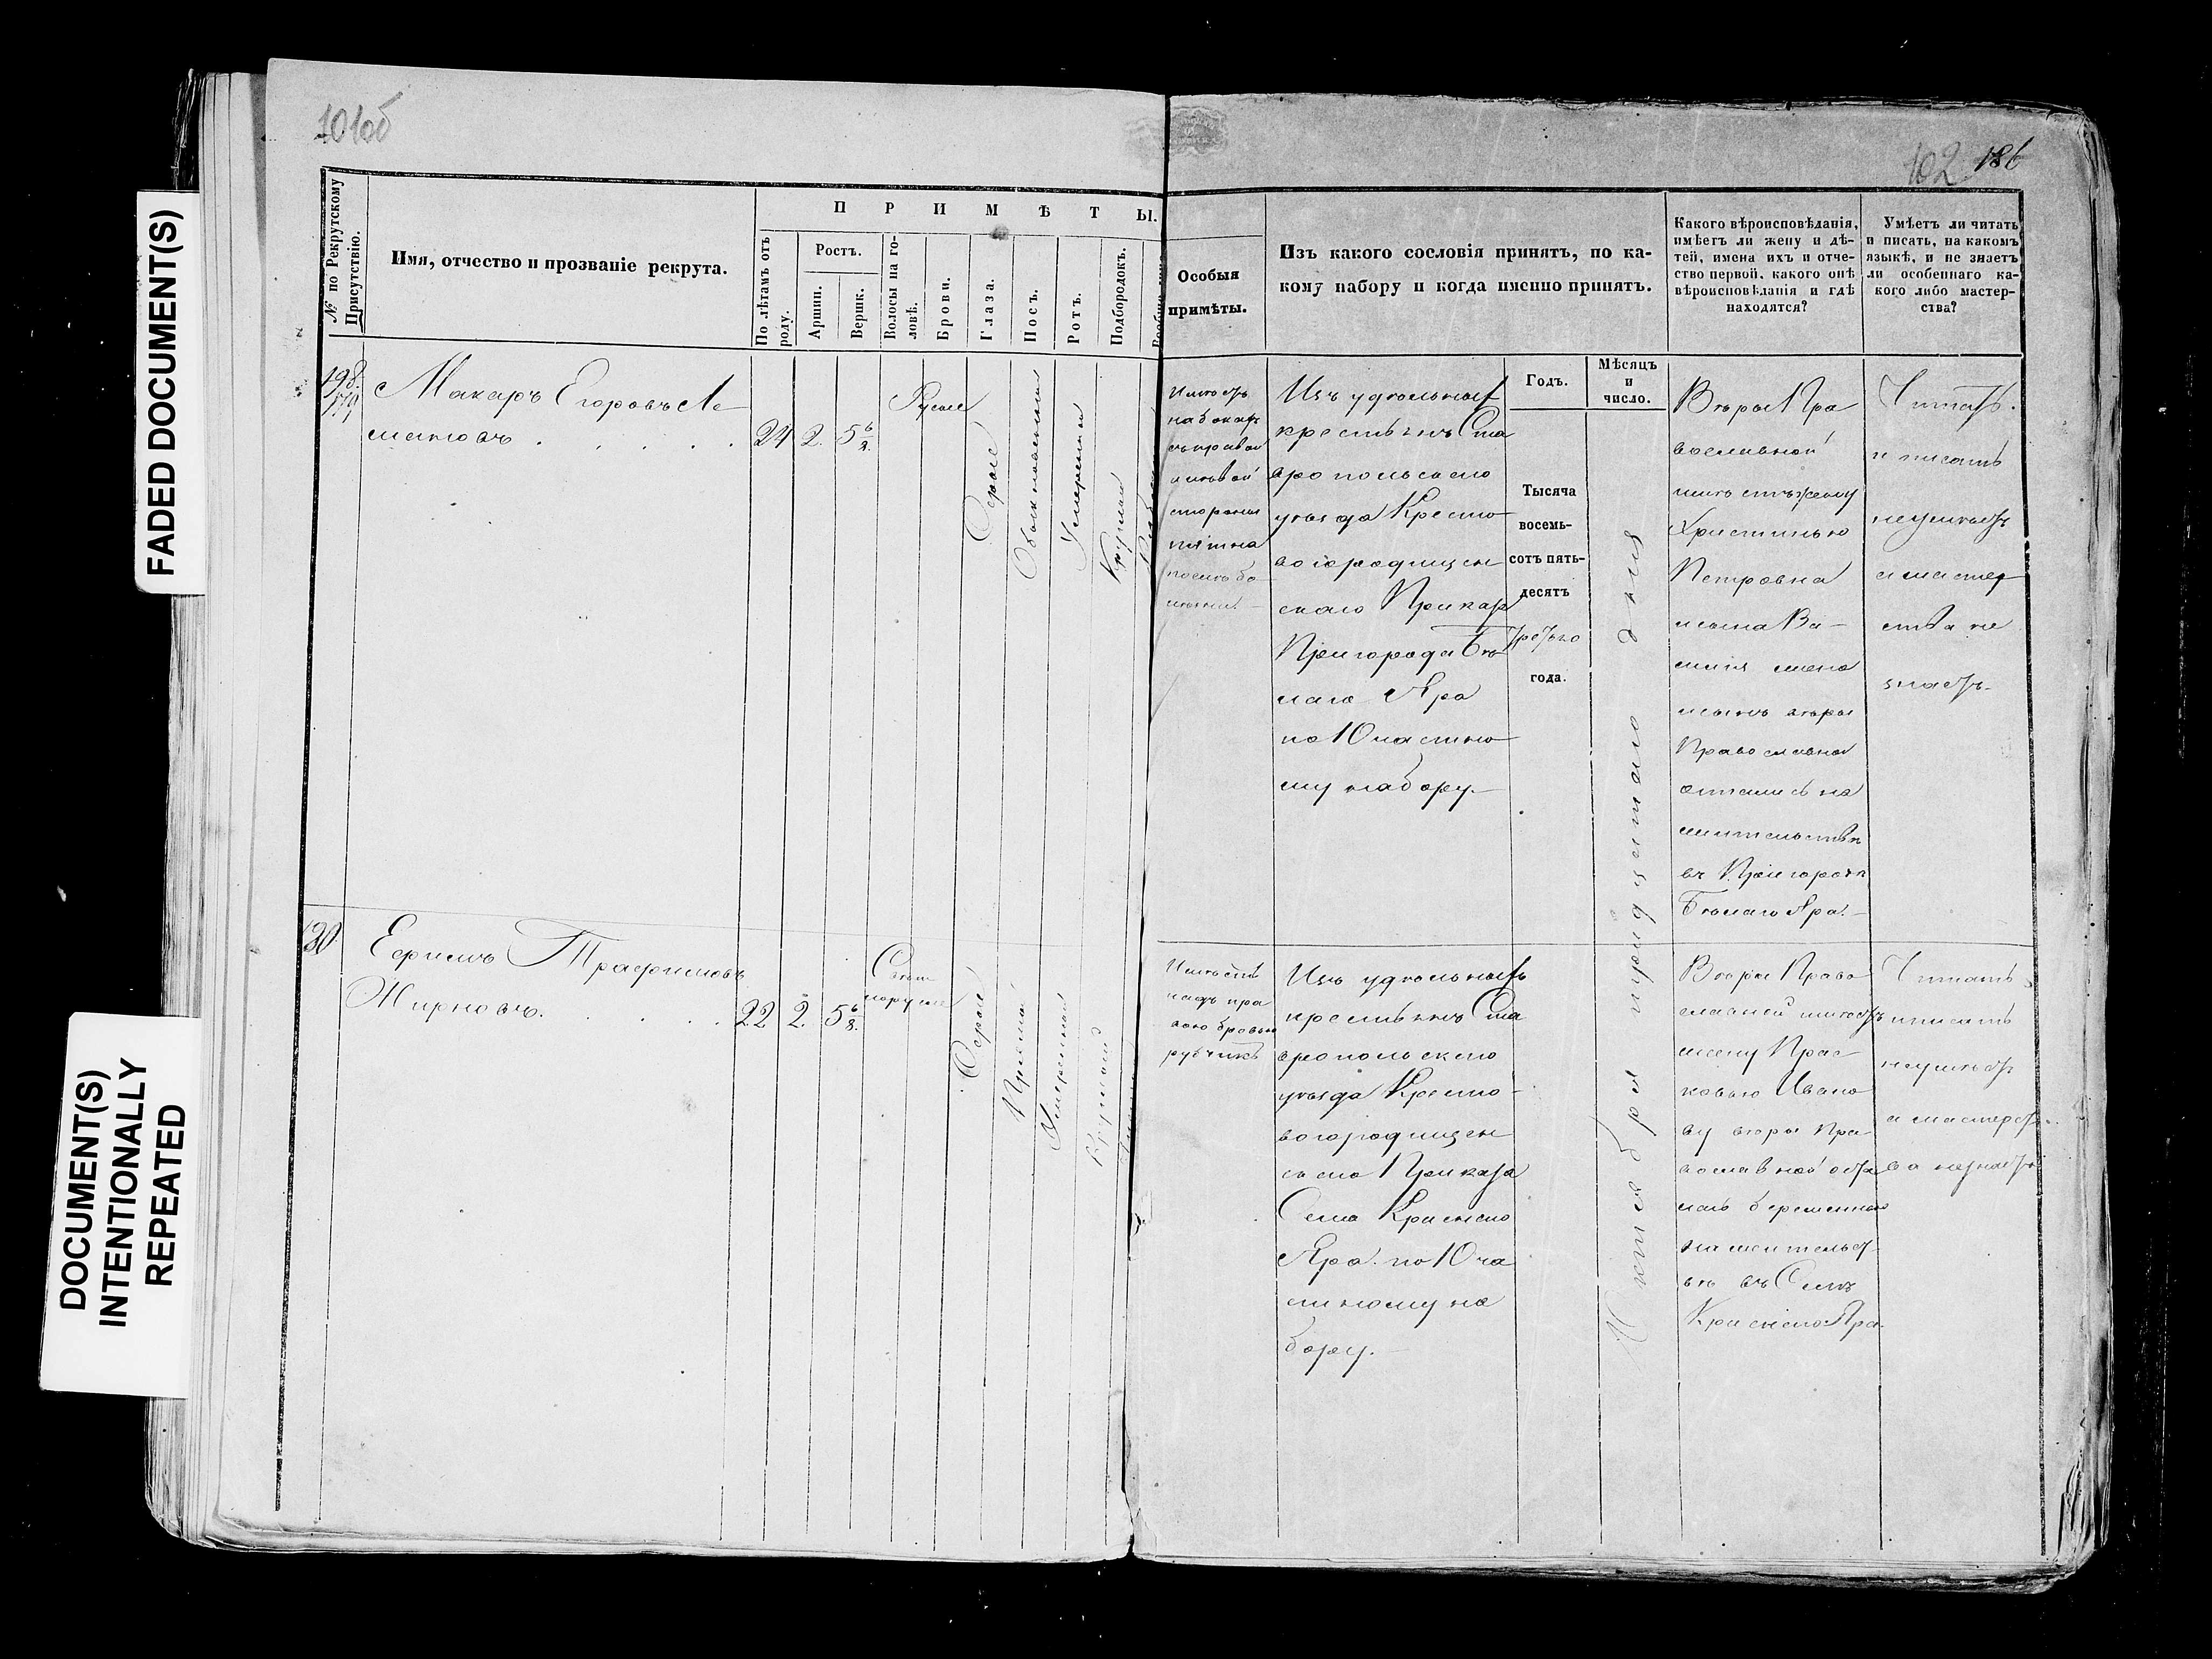 101об
102 186
FADED DOCUMENT(S)
DOCUMENT(S)
INTENTIONALLY
REPEATED
№ по Рекрутскому
Присутствію.
Имя, отчество и прозваніе рекрута.
ПРИМѢТЫ.
По лѣтамъ отъ
роду.
Ростъ.
Аршин.
Вершк.
Волосы на го-
ловѣ.
Брови.
Глаза.
Носъ.
Ротъ.
Подбородокъ.
Особыя
примѣты.
Изъ какого сословія принятъ, по ка-
кому набору и когда именно принятъ.
Какого вѣроисповѣданія,
имѣетъ ли жену и дѣ-
тей, имена ихъ и отче-
ство первой, какого онѣ
вѣроисповѣданія и гдѣ
находятся?
Умѣетъ ли читать
и писать, на какомъ
языкѣ, и не знаетъ
ли особеннаго ка-
кого либо мастер-
ства?
Годъ.
Мѣсяцъ
и
число.
Макаръ Егоровъ Ле-
24 2. 5 6/8.
Русые
Серые
Обыкновенный
Умеренный
Круглый
Имѣетъ
на бокахъ
съ правой
и левой
стороны
пятна
Изъ удѣльныхъ
крестьянъ Ста
вропольского
уѣзда Кресто
вогородищен
скаго Приказа
Пригорода Бѣ
лаго Яра
по 10 частно
му набору.
Тысяча
восемь-
сотъ пять-
десятъ
третьяго
года.
Октября тридцатаго дня
Вѣры Пра
вославной
имѣетъ жену
Христинью
Петровна
сына Ва-
силія жена
и сынъ вѣры
Православной
остались на
жительствѣ
въ Пригородѣ
Бѣлаго Яра.
Читать
и писать
неумѣетъ
а мастер
ства не
знаетъ.
120
Ефимъ Трафимовъ
Жирновъ.
22 2. 5 6/8.
Свет
лорусые
Серые
Прямой
Умеренный
Круглый
Имѣетъ
надъ пра
вою бровью
рубчикъ
Изъ удѣльныхъ
крестьянъ Ста
вропольского
уѣзда Кресто-
вогородищен
скаго Приказа
Села Краснаго
Яра по 10 ча
стному на
бору.
Вѣры Право
славной имѣетъ
жену Прас
ковью Ивано
ву вѣры Пра
вославной оста
лась беременною
на жительст
вѣ въ Селѣ
Краснаго Яра.
Читать
и писать
неумѣетъ
а мастерст
ва незнаетъ